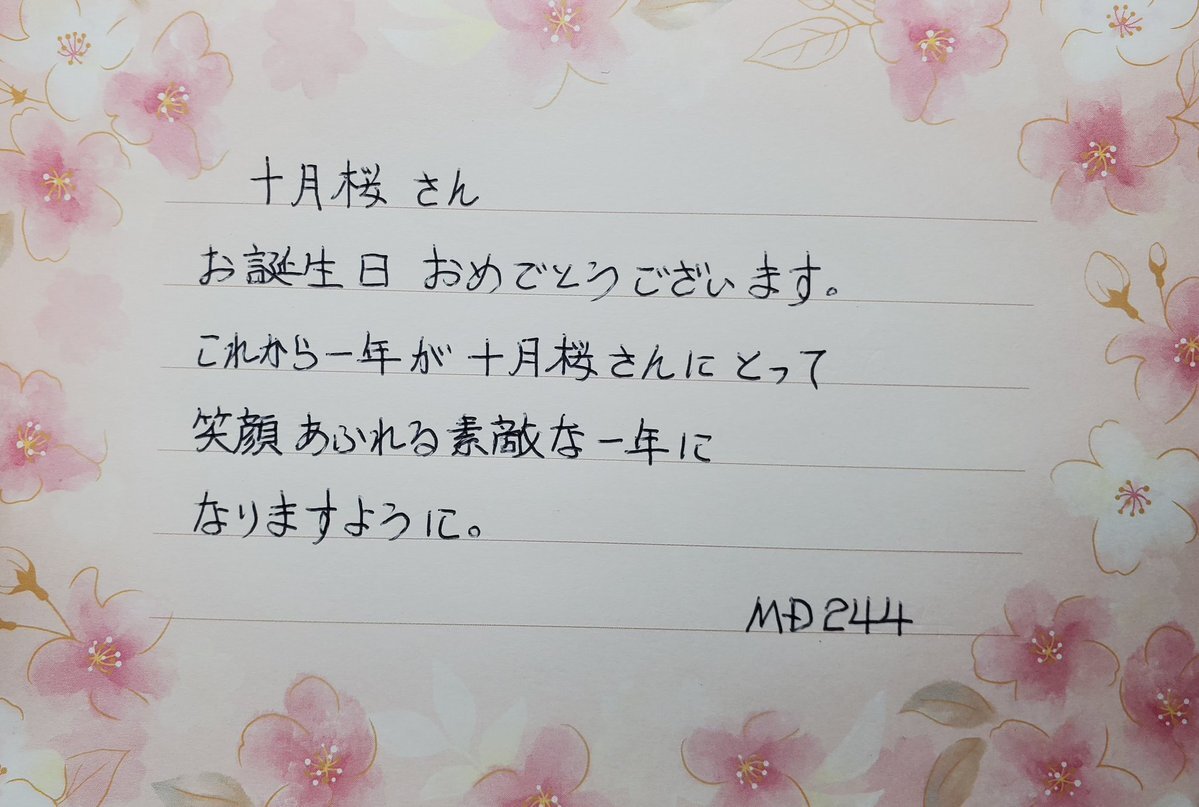 十月桜 さん
お誕生日 おめでとうございます。
これから一年が 十月桜さんにとって
笑顔あふれる素敵な一年に
なりますように。
MD244